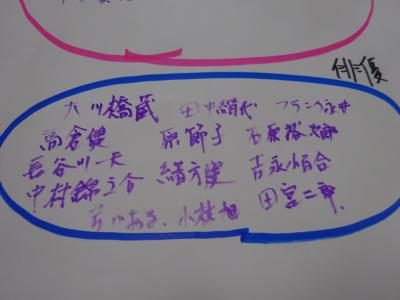 俳優
大川橋蔵 田中絹代 フランク永井
高倉健 原節子 石原裕次郎
長谷川一夫 緒方健 吉永小百合
中村錦之介 小林旭 田宮二郎